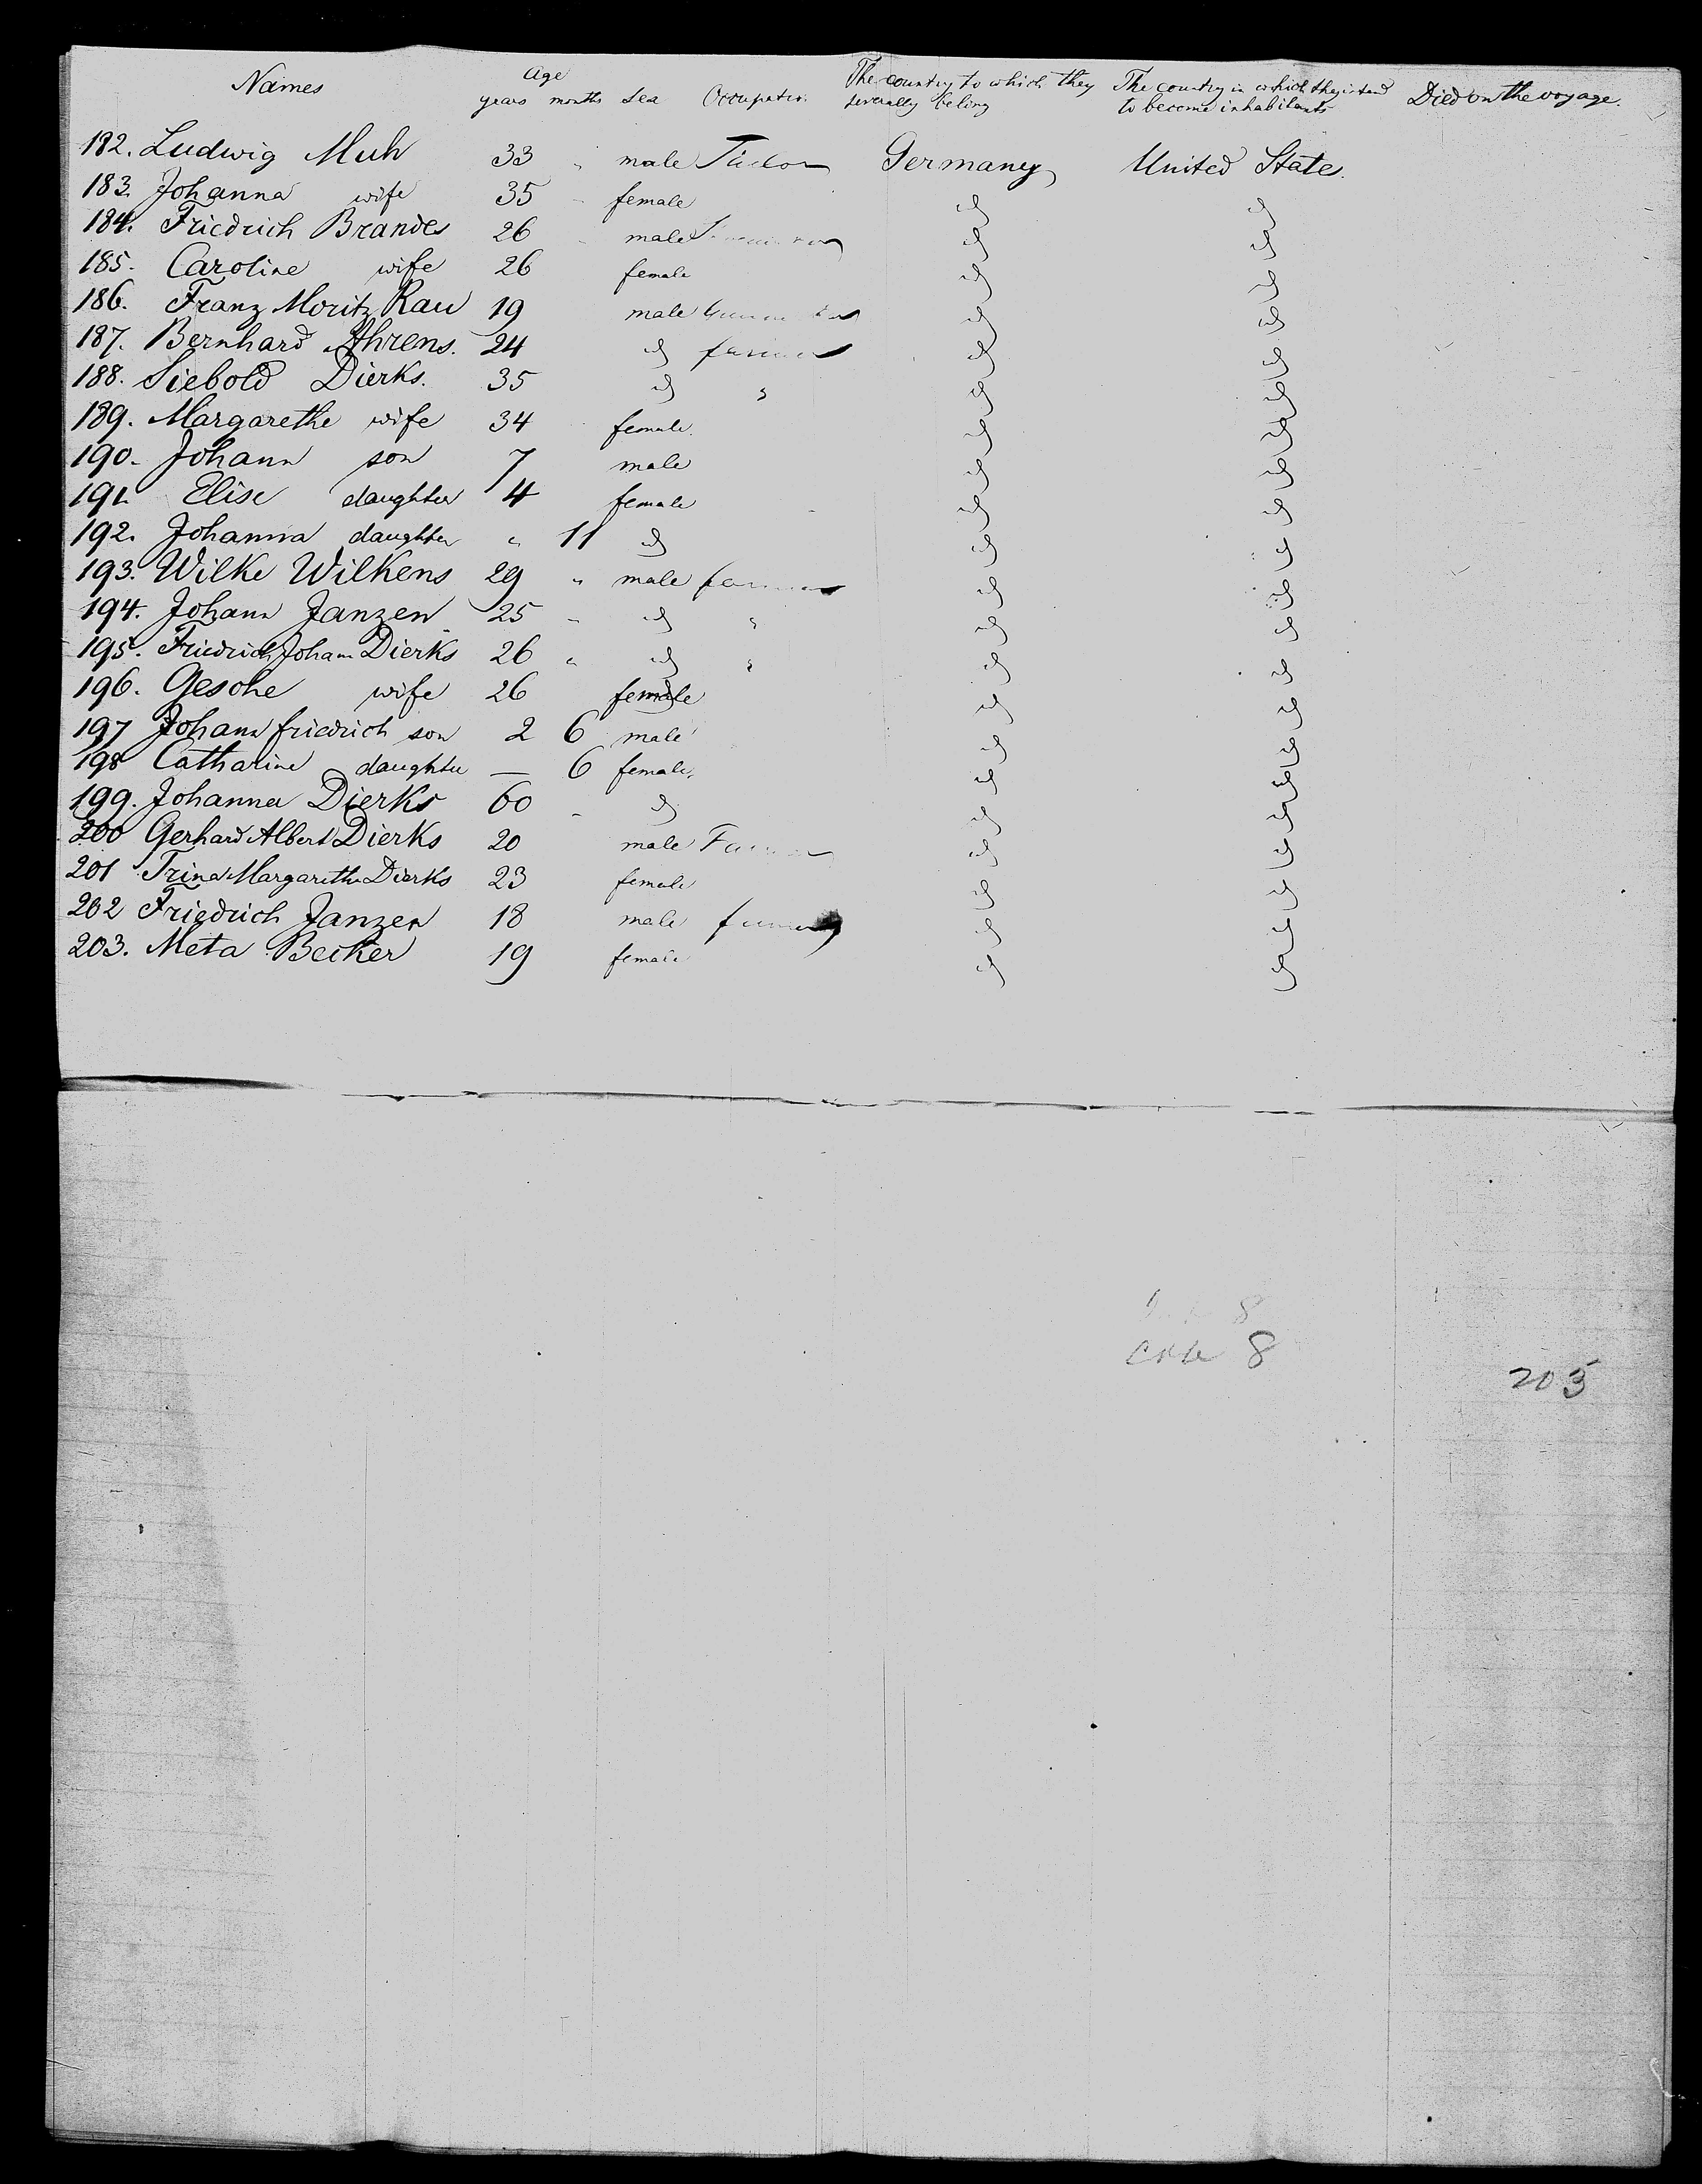 Names Age years months Sex Occupation The country to which they severally belong The country in which they intend to become inhabitants Died on the voyage.
182. Ludwig Muh 33 " male Tailor Germany United States.
183. Johanna wife 35 " female id id
184. Friedrich Brandes 26 " male id id
185. Caroline wife 26 female id id
186. Franz Moritz Rau 19 male id id
187. Bernhard Ahrens. 24 id farmer id id
188. Siebold Dierks. 35 id " id id
189. Margarethe wife 34 female. id id
190. Johann son 7 male id id
191. Elise daughter 4 female id id
192. Johanna daughter " 11 id id id
193. Wilke Wilkens 29 " male farmer id id
194. Johann Janzen 25 " id " id id
195. Friedrich Johann Dierks 26 " id " id id
196. Gesche wife 26 female id id
197 Johann friedrich son 2 6 male id id
198 Catharine daughter — 6 female. id id
199. Johanna Dierks 60 " id id id
200 Gerhard Albert Dierks 20 male Farmer id id
201 Trina Margarethe Dierks 23 female id id
202 Friedrich Janzen 18 male farmer id id
203. Meta Becker 19 female id id
8
8
203